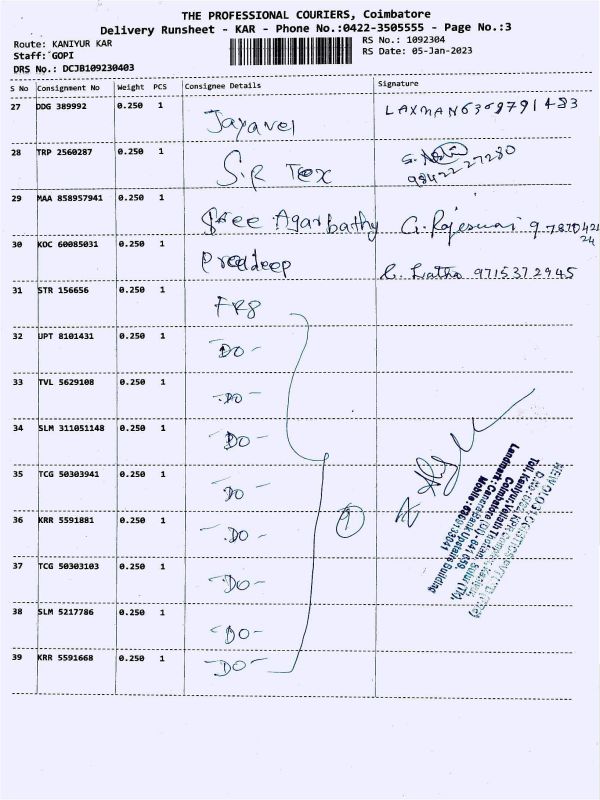 THE PROFESSIONAL COURIERS, Coimbatore
Delivery Runsheet - KAR - Phone No.:0422-3505555 - Page No.:3
Route: KANIYUR KAR
RS No.: 1092304
Staff: GOPI
RS Date: 05-Jan-2023
DRS No.: DCJB109230403
S No Consignment No Weight PCS Consignee Details Signature
27 DDG 389992 0.250 1 Jayavel LAXMAN 6369791483
28 TRP 2560287 0.250 1 S.R Tex 9842227280
29 MAA 858957941 0.250 1 Sree Agarbathy G. Rajeswari
30 KOC 60085031 0.250 1 Pradeep Latha 9715372945
31 STR 156656 0.250 1 FR8
32 UPT 8101431 0.250 1 -DO-
33 TVL 5629108 0.250 1 -DO-
34 SLM 311051148 0.250 1 -DO-
35 TCG 50303941 0.250 1 DO
36 KRR 5591881 0.250 1 -DO-
37 TCG 50303103 0.250 1 -DO-
38 SLM 5217786 0.250 1 -DO-
39 KRR 5591668 0.250 1 -DO-
9
Landmark: Canara Bank Upstairs Building
Mobile : 6369133041